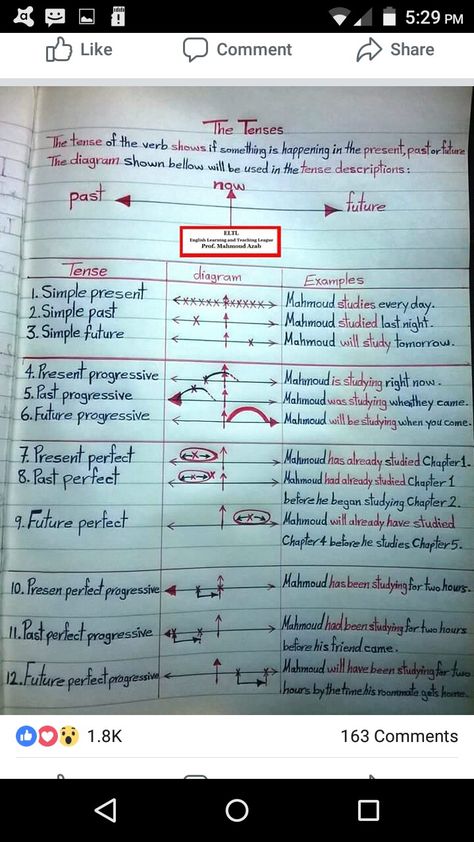 5:29 PM
Like
Comment
Share
The Tenses
The tense of the verb shows if something is happening in the present, past or future
The diagram shown bellow will be used in the tense descriptions:
now
past
future
ELTL
English Learning and Teaching League
Prof. Mahmoud Azab
Tense diagram Examples
1. Simple present Mahmoud studies every day.
2. Simple past Mahmoud studied last night.
3. Simple future Mahmoud will study tomorrow.
4. Present progressive Mahmoud is studying right now.
5. Past progressive Mahmoud was studying when they came.
6. Future progressive Mahmoud will be studying when you come.
7. Present perfect Mahmoud has already studied Chapter 1.
8. Past perfect Mahmoud had already studied Chapter 1
before he began studying Chapter 2.
9. Future perfect Mahmoud will already have studied
Chapter 4 before he studies Chapter 5.
10. Presen perfect progressive Mahmoud has been studying for two hours.
11. Past perfect progressive Mahmoud had been studying for two hours
before his friend came.
12. Future perfect progressive Mahmoud will have been studying for two
hours by the time his roommate gets home.
1.8K
163 Comments